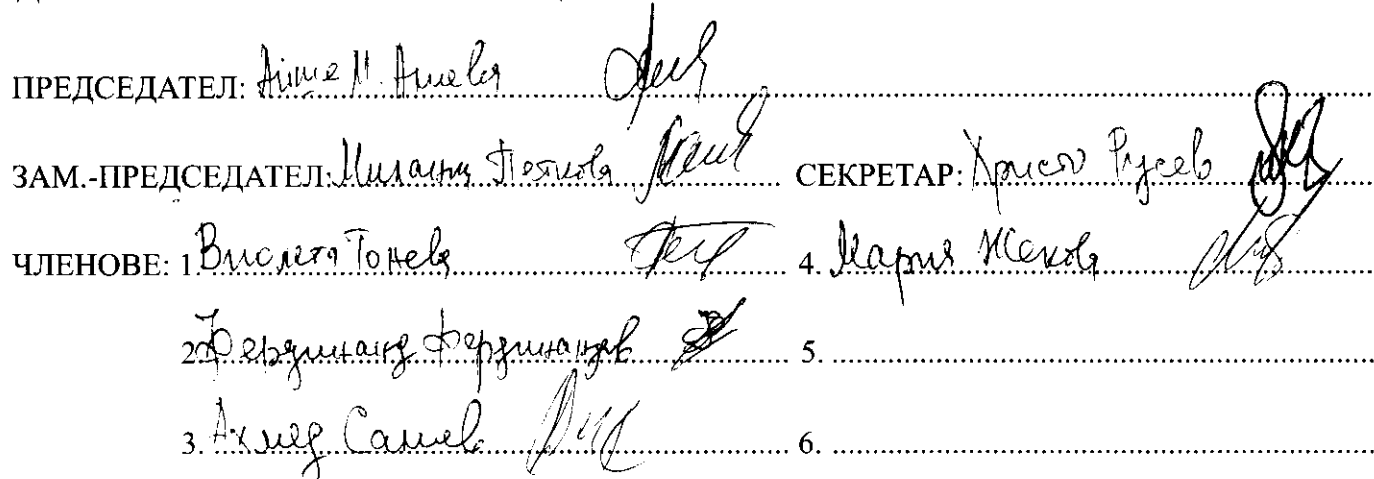 ПРЕДСЕДАТЕЛ: Айше М. Алиева
ЗАМ.-ПРЕДСЕДАТЕЛ: Милана Петкова СЕКРЕТАР: Христо Русев
ЧЛЕНОВЕ: 1. Виолета Тонева 4. Мария Жекова
2. Фердинанд Фердинандов 5.
3. Ахмед Салиев 6.